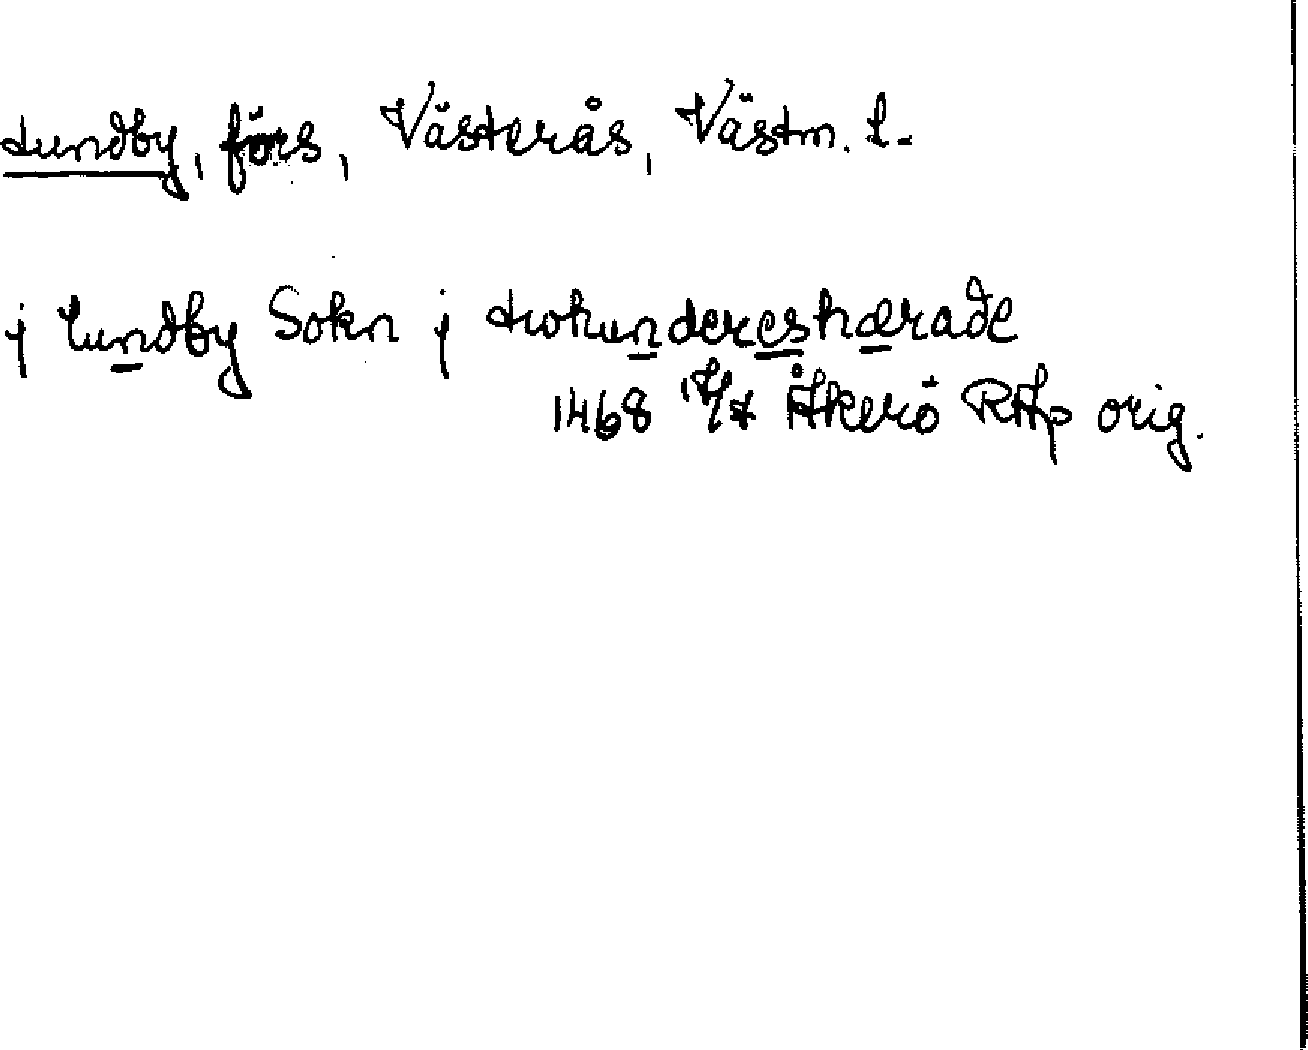 Lundby, förs, Västerås, Västm. l.
j lundby Sokn j twhundereshærade
1468 Åkerö RAp orig.